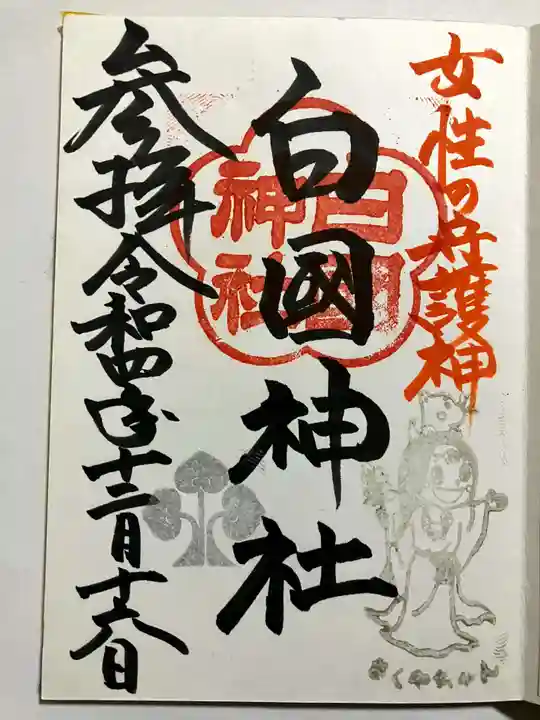 女性の守護神
白國神社
白国神社
参拝 令和四年十二月十六日
さくやちゃん